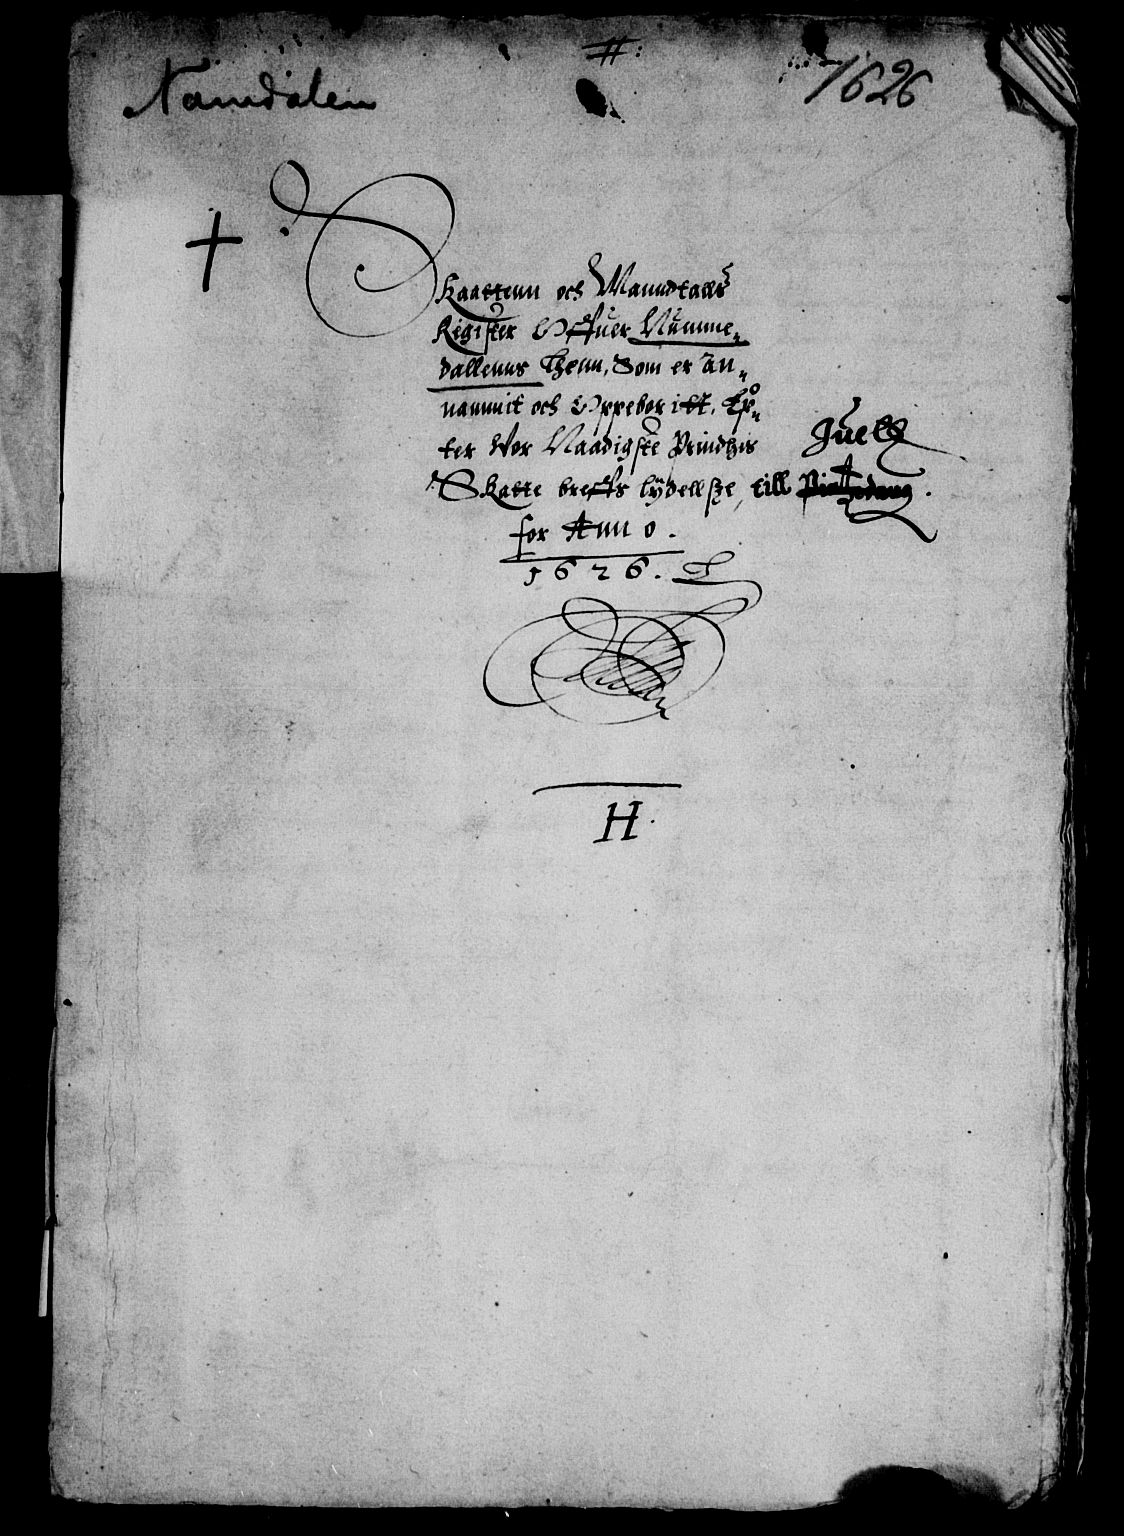 #:
Namdalen
1626
Skaattenn och Manndtalls
Register Offuer Nŭmme„
dallenns Lhenn, Som er an„
nammit och Oppeboritt, Ep„
ter Wor Naadigste Prindhzis
Skatte breffs lÿdellsze, till
Juell
for Anno.
1626.
H.